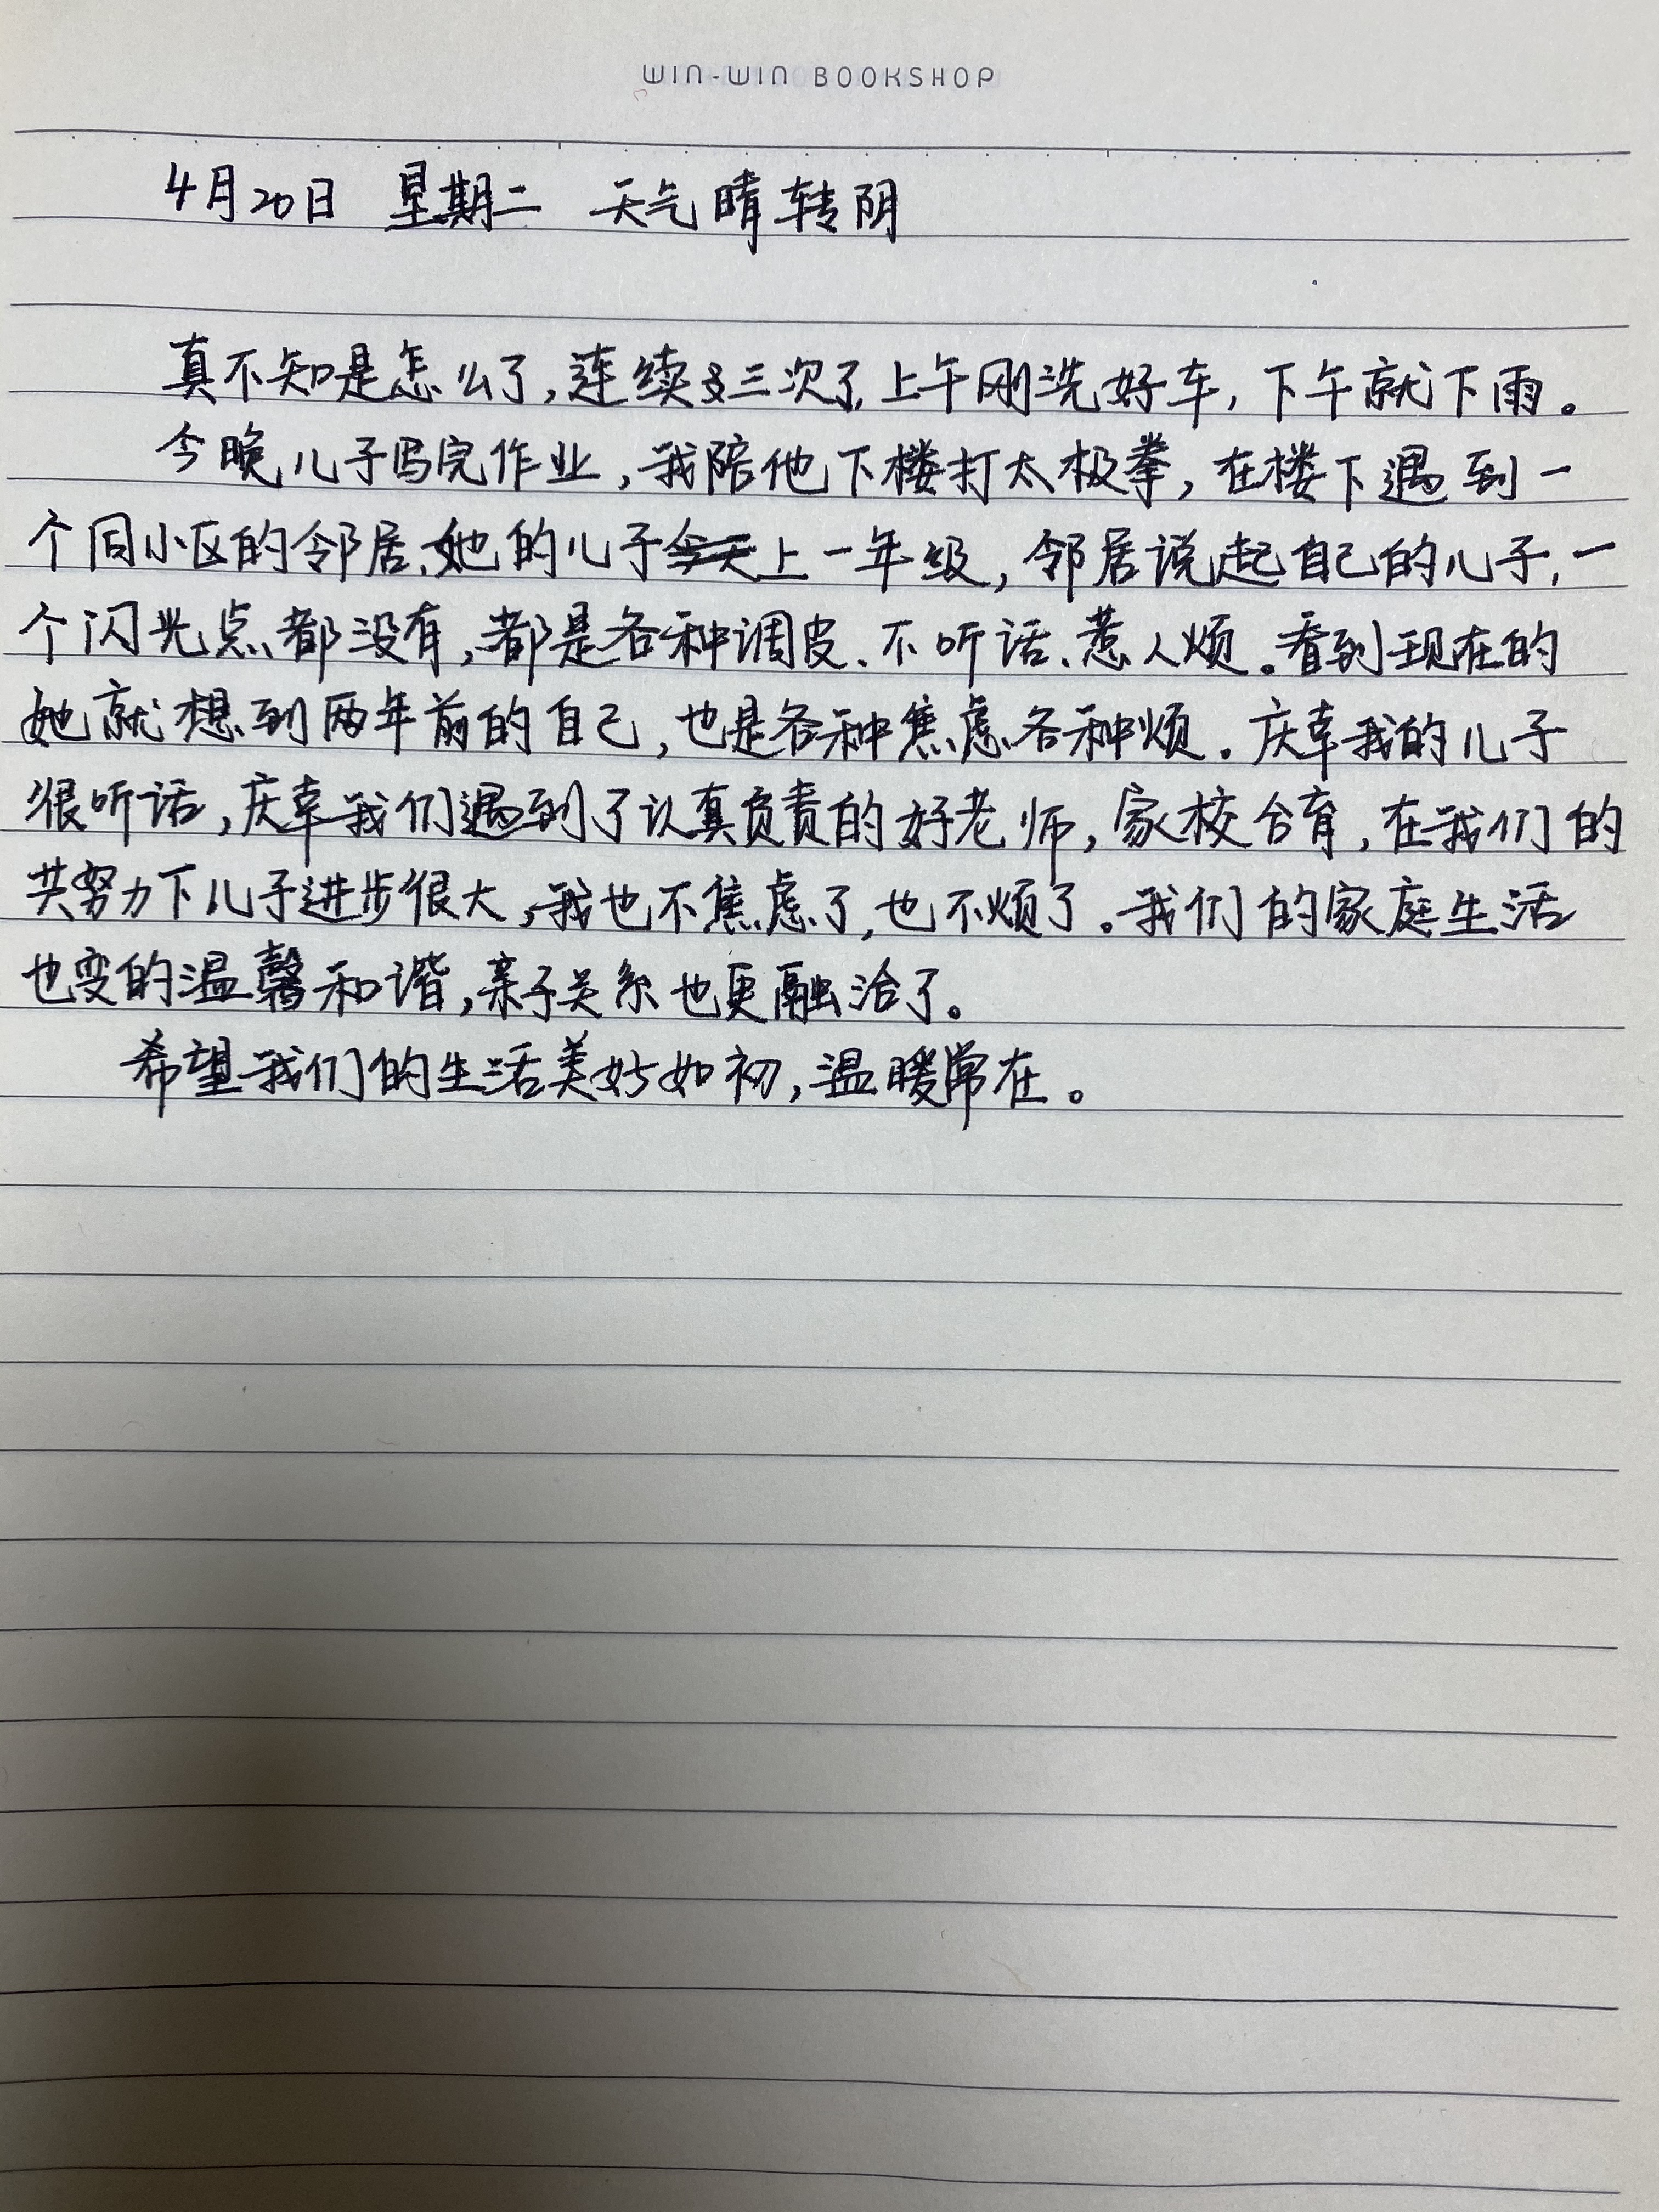 WIN-WIN BOOKSHOP
4月20日 星期二 天气晴转阴
真不知是怎么了,连续三次了,上午刚洗好车,下午就下雨。
今晚儿子写完作业,我陪他下楼打太极拳,在楼下遇到一
个同小区的邻居,她的儿子上一年级,邻居说起自己的儿子,一
个闪光点都没有,都是各种调皮、不听话、惹人烦。看到现在的
她就想到两年前的自己,也是各种焦虑各种烦。庆幸我的儿子
很听话,庆幸我们遇到了认真负责的好老师,家校合育,在我们的
共努力下儿子进步很大,我也不焦虑了,也不烦了。我们的家庭生活
也变的温馨和谐,亲子关系也更融洽了。
希望我们的生活美好如初,温暖常在。